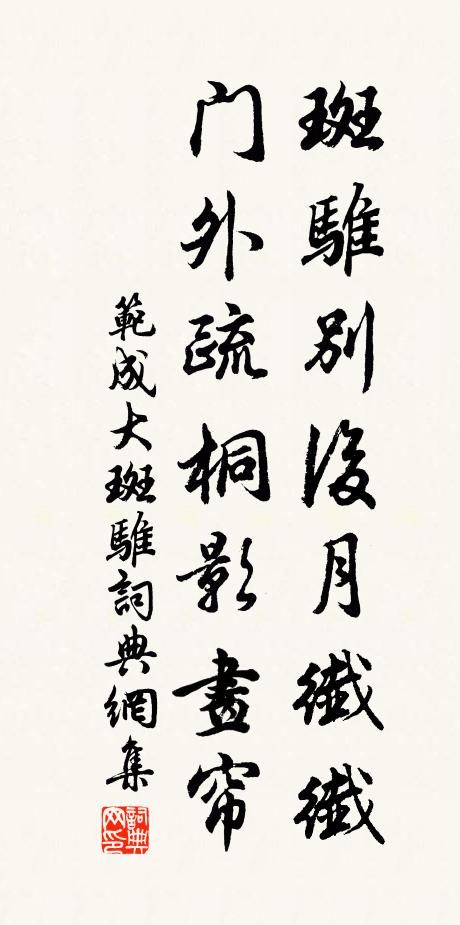 斑騅別後月纖纖
门外疏桐影畫帘
範成大斑騅詞典網集
詞典网印